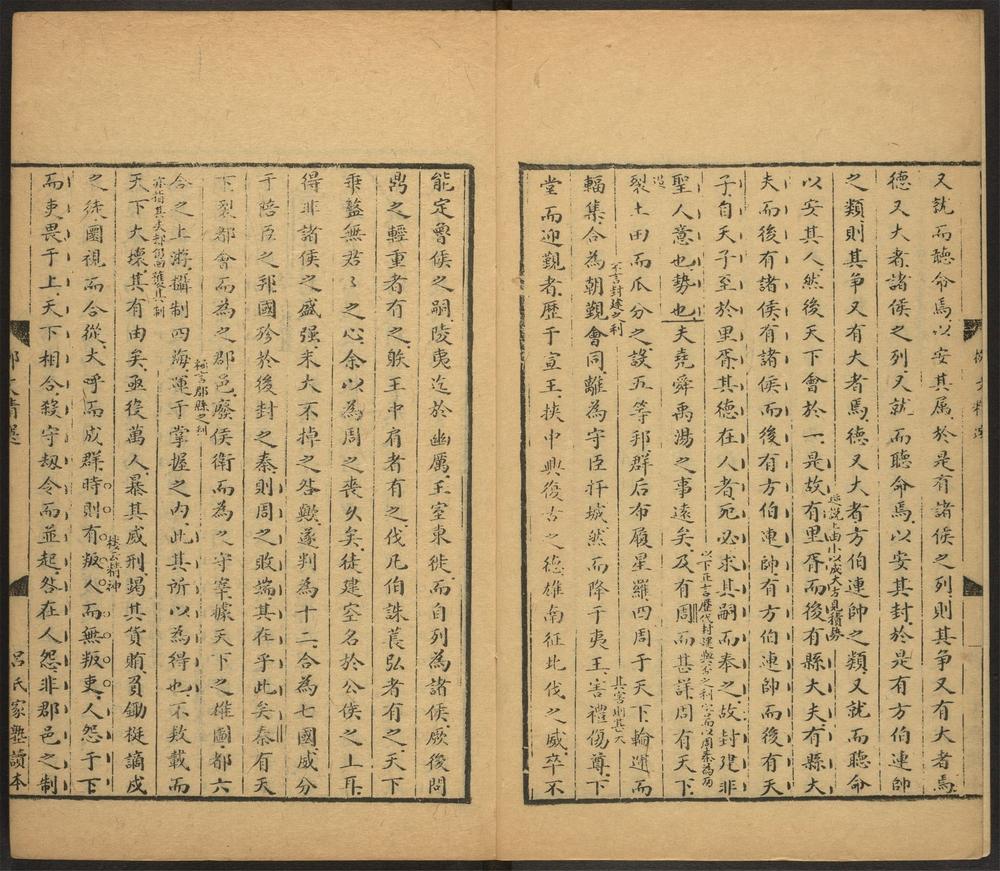 又就而聽命焉以安其属於是有諸侯之列則其争又有大者焉
德又大者諸侯之列又就而聽命焉以安其封於是有方伯連帥
之類則其争又有大者焉德又大者方伯連帥之類又就而聽命
以安其人然後天下會於一是故有里胥而後有縣大夫有縣大
夫而後有諸侯有諸侯而後有方伯連帥有方伯連帥而後有天
子自天子至於里胥其德在人者死必求其嗣而奉之故封建非
聖人意也勢也夫堯舜禹湯之事遠矣及有周而甚詳周有天下
裂土田而瓜分之設五等邦群后布履星羅四周于天下輪運而
輻集合為朝覲會同離為守臣扞城然而降于夷王害禮傷尊下
堂而迎覲者歷于宣王挾中興復古之德雄南征北伐之威卒不
能定魯侯之嗣陵夷迄於幽厲王室東徙而自列為諸侯厥後問
鼎之輕重者有之躲王中肩者有之伐凡伯誅萇弘者有之天下
乖盭無君君之心余以為周之喪久矣徒建空名於公侯之上耳
得非諸侯之盛强末大不掉之咎歟遂判為十二合為七國威分
于陪臣之邦國殄於後封之秦則周之敗端其在乎此矣秦有天
下裂都會而為之郡邑廢侯衛而為之守宰據天下之雄圖都六
合之上游攝制四海運于掌握之内此其所以為得也不数載而
天下大壞其有由矣亟役萬人暴其威刑竭其貨賄負鋤梃謫戍
之徒圜視而合從大呼而成群時則有叛人而無叛吏人怨于下
而吏畏于上天下相合殺守刼令而並起咎在人怨非郡邑之制
逆說上由小以成大方見積勢
以下正言歷代封建
不言封建之利
其害則甚大
極言郡縣之利
樓云精神
呂氏家塾讀本